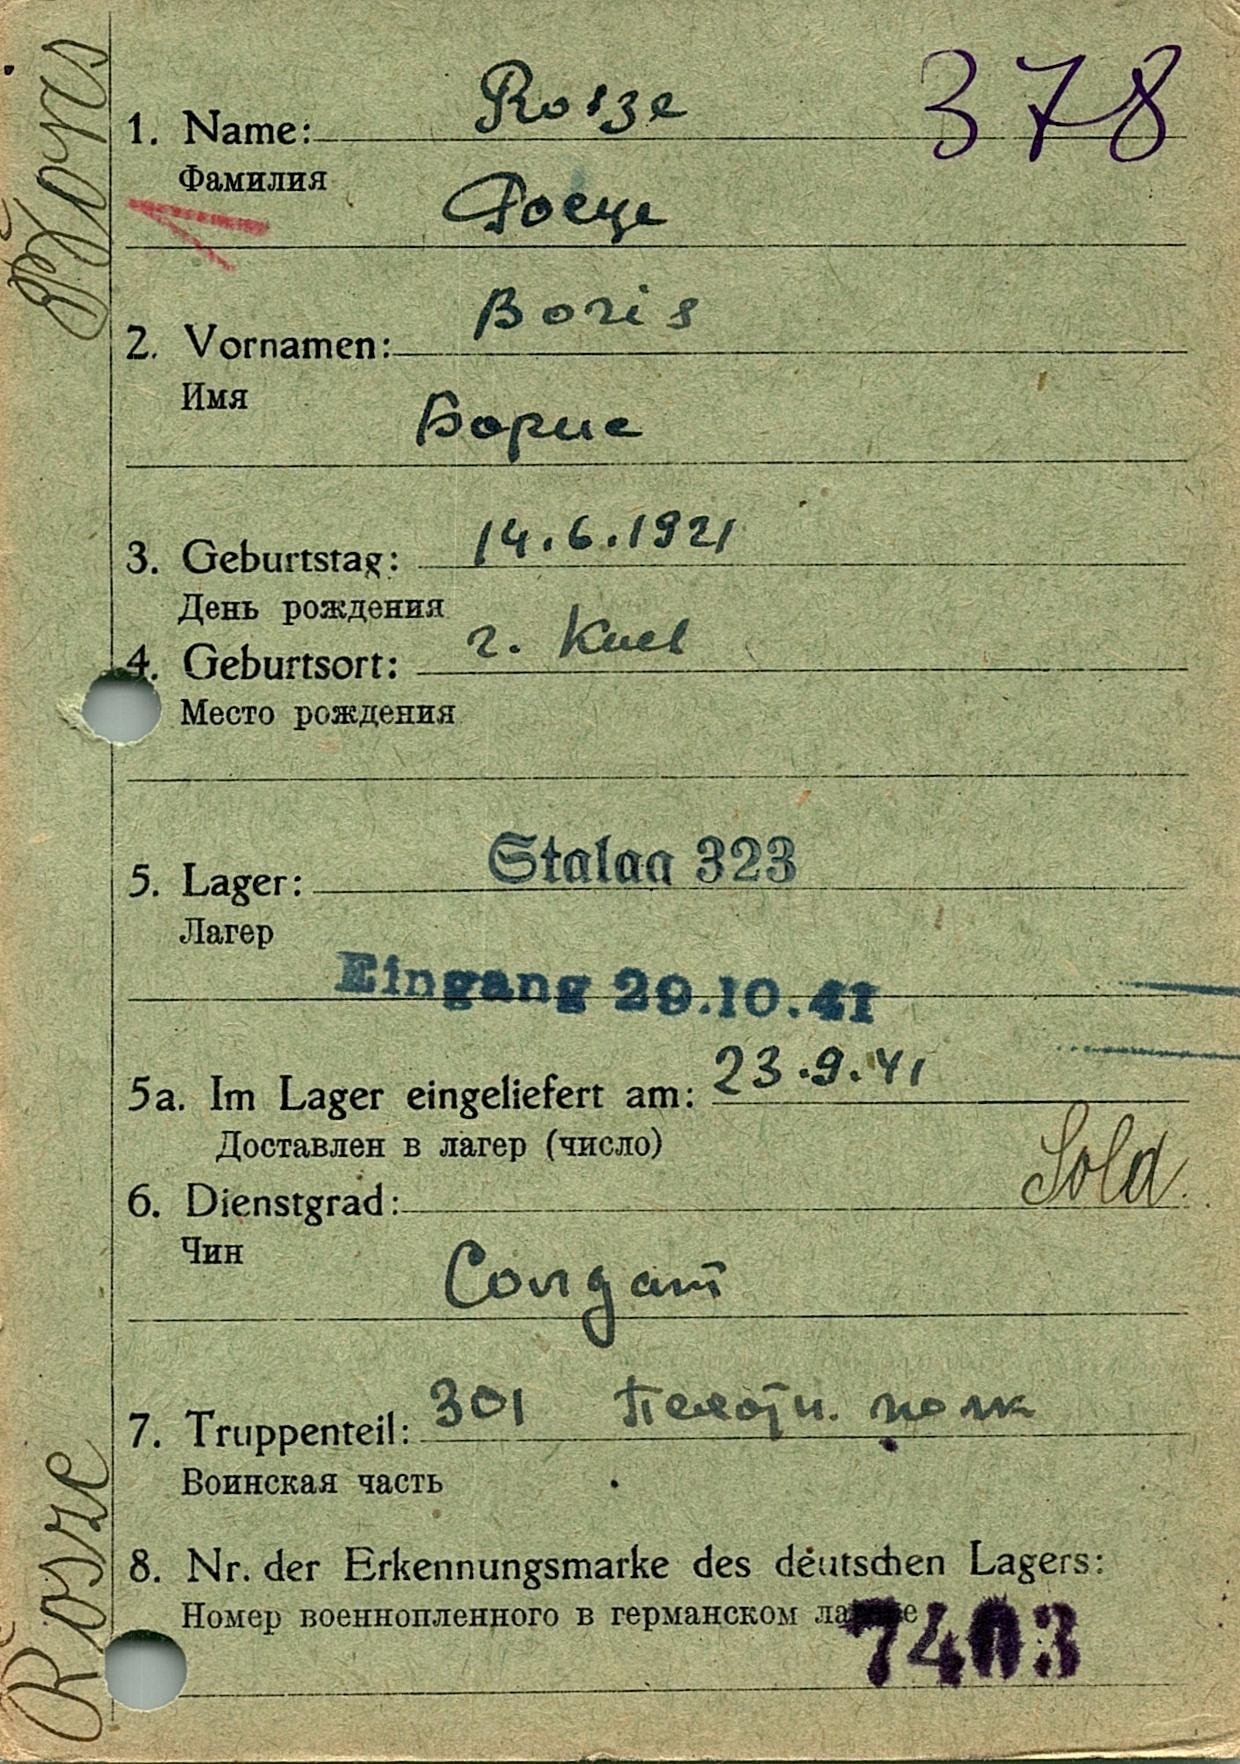 378
1. Name: Rosze
Фамилия
Росце
2. Vornamen: Boris
Имя
Борис
3. Geburtstag: 14.6.1921
День рождения
4. Geburtsort: г. Киев
Место рождения
5. Lager: Stalag 323
Лагер
Eingang 29.10.41
5a. Im Lager eingeliefert am: 23.9.41
Доставлен в лагер (число)
6. Dienstgrad: Sold.
Чин
Солдат
7. Truppenteil: 301 полк
Воинская часть
8. Nr. der Erkennungsmarke des deutschen Lagers:
Номер военнопленного в германском лагере
7403
Rosze Boris